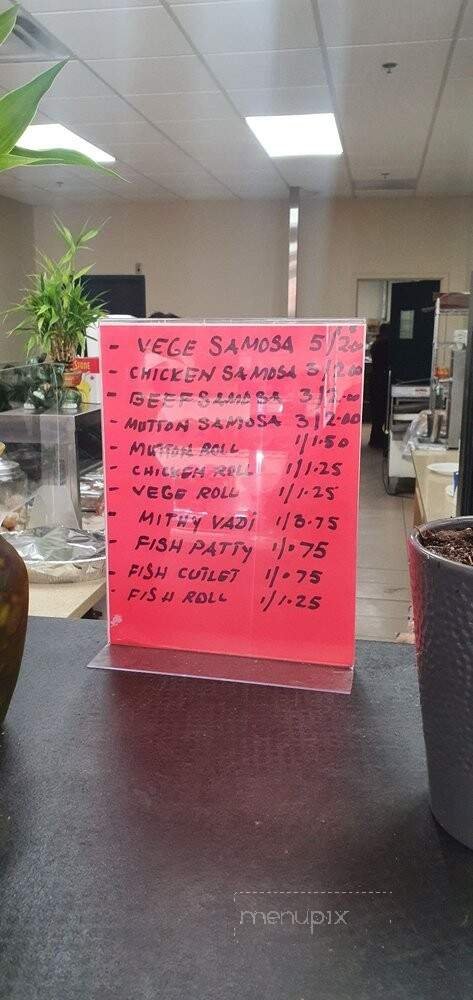 - VEGE SAMOSA 5/2.00
- CHICKEN SAMOSA 3/2.00
- BEEF SAMOSA 3/2.00
- MUTTON SAMOSA 3/2.00
- MUTTON ROLL 1/1.50
- CHICKEN ROLL 1/1.25
- VEGE ROLL 1/1.25
- MITHY VADI 1/3.75
- FISH PATTY 1/.75
- FISH CUTLET 1/.75
- FISH ROLL 1/1.25
menupix